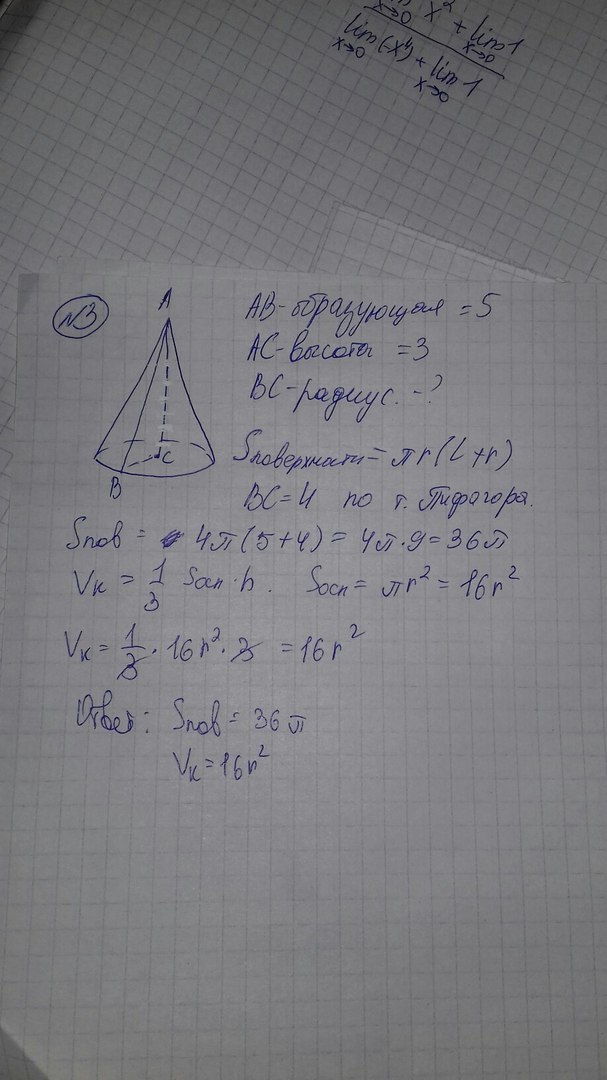 lim x² + lim 1
x→0 x→0
lim (-x⁴) + lim 1
x→0 x→0
N3
A
B
C
AB-образующая = 5
AC-высота = 3
BC-радиус. - ?
Sповерхнати = πr(L+r)
BC = 4 по т. Пифагора.
Sпов = 4π(5+4) = 4π·9 = 36π
Vк = 1/3 Sосн·h. Sосн = πr² = 16r²
Vк = 1/3 · 16r² · 3 = 16r²
Ответ: Sпов = 36π
Vк = 16r²